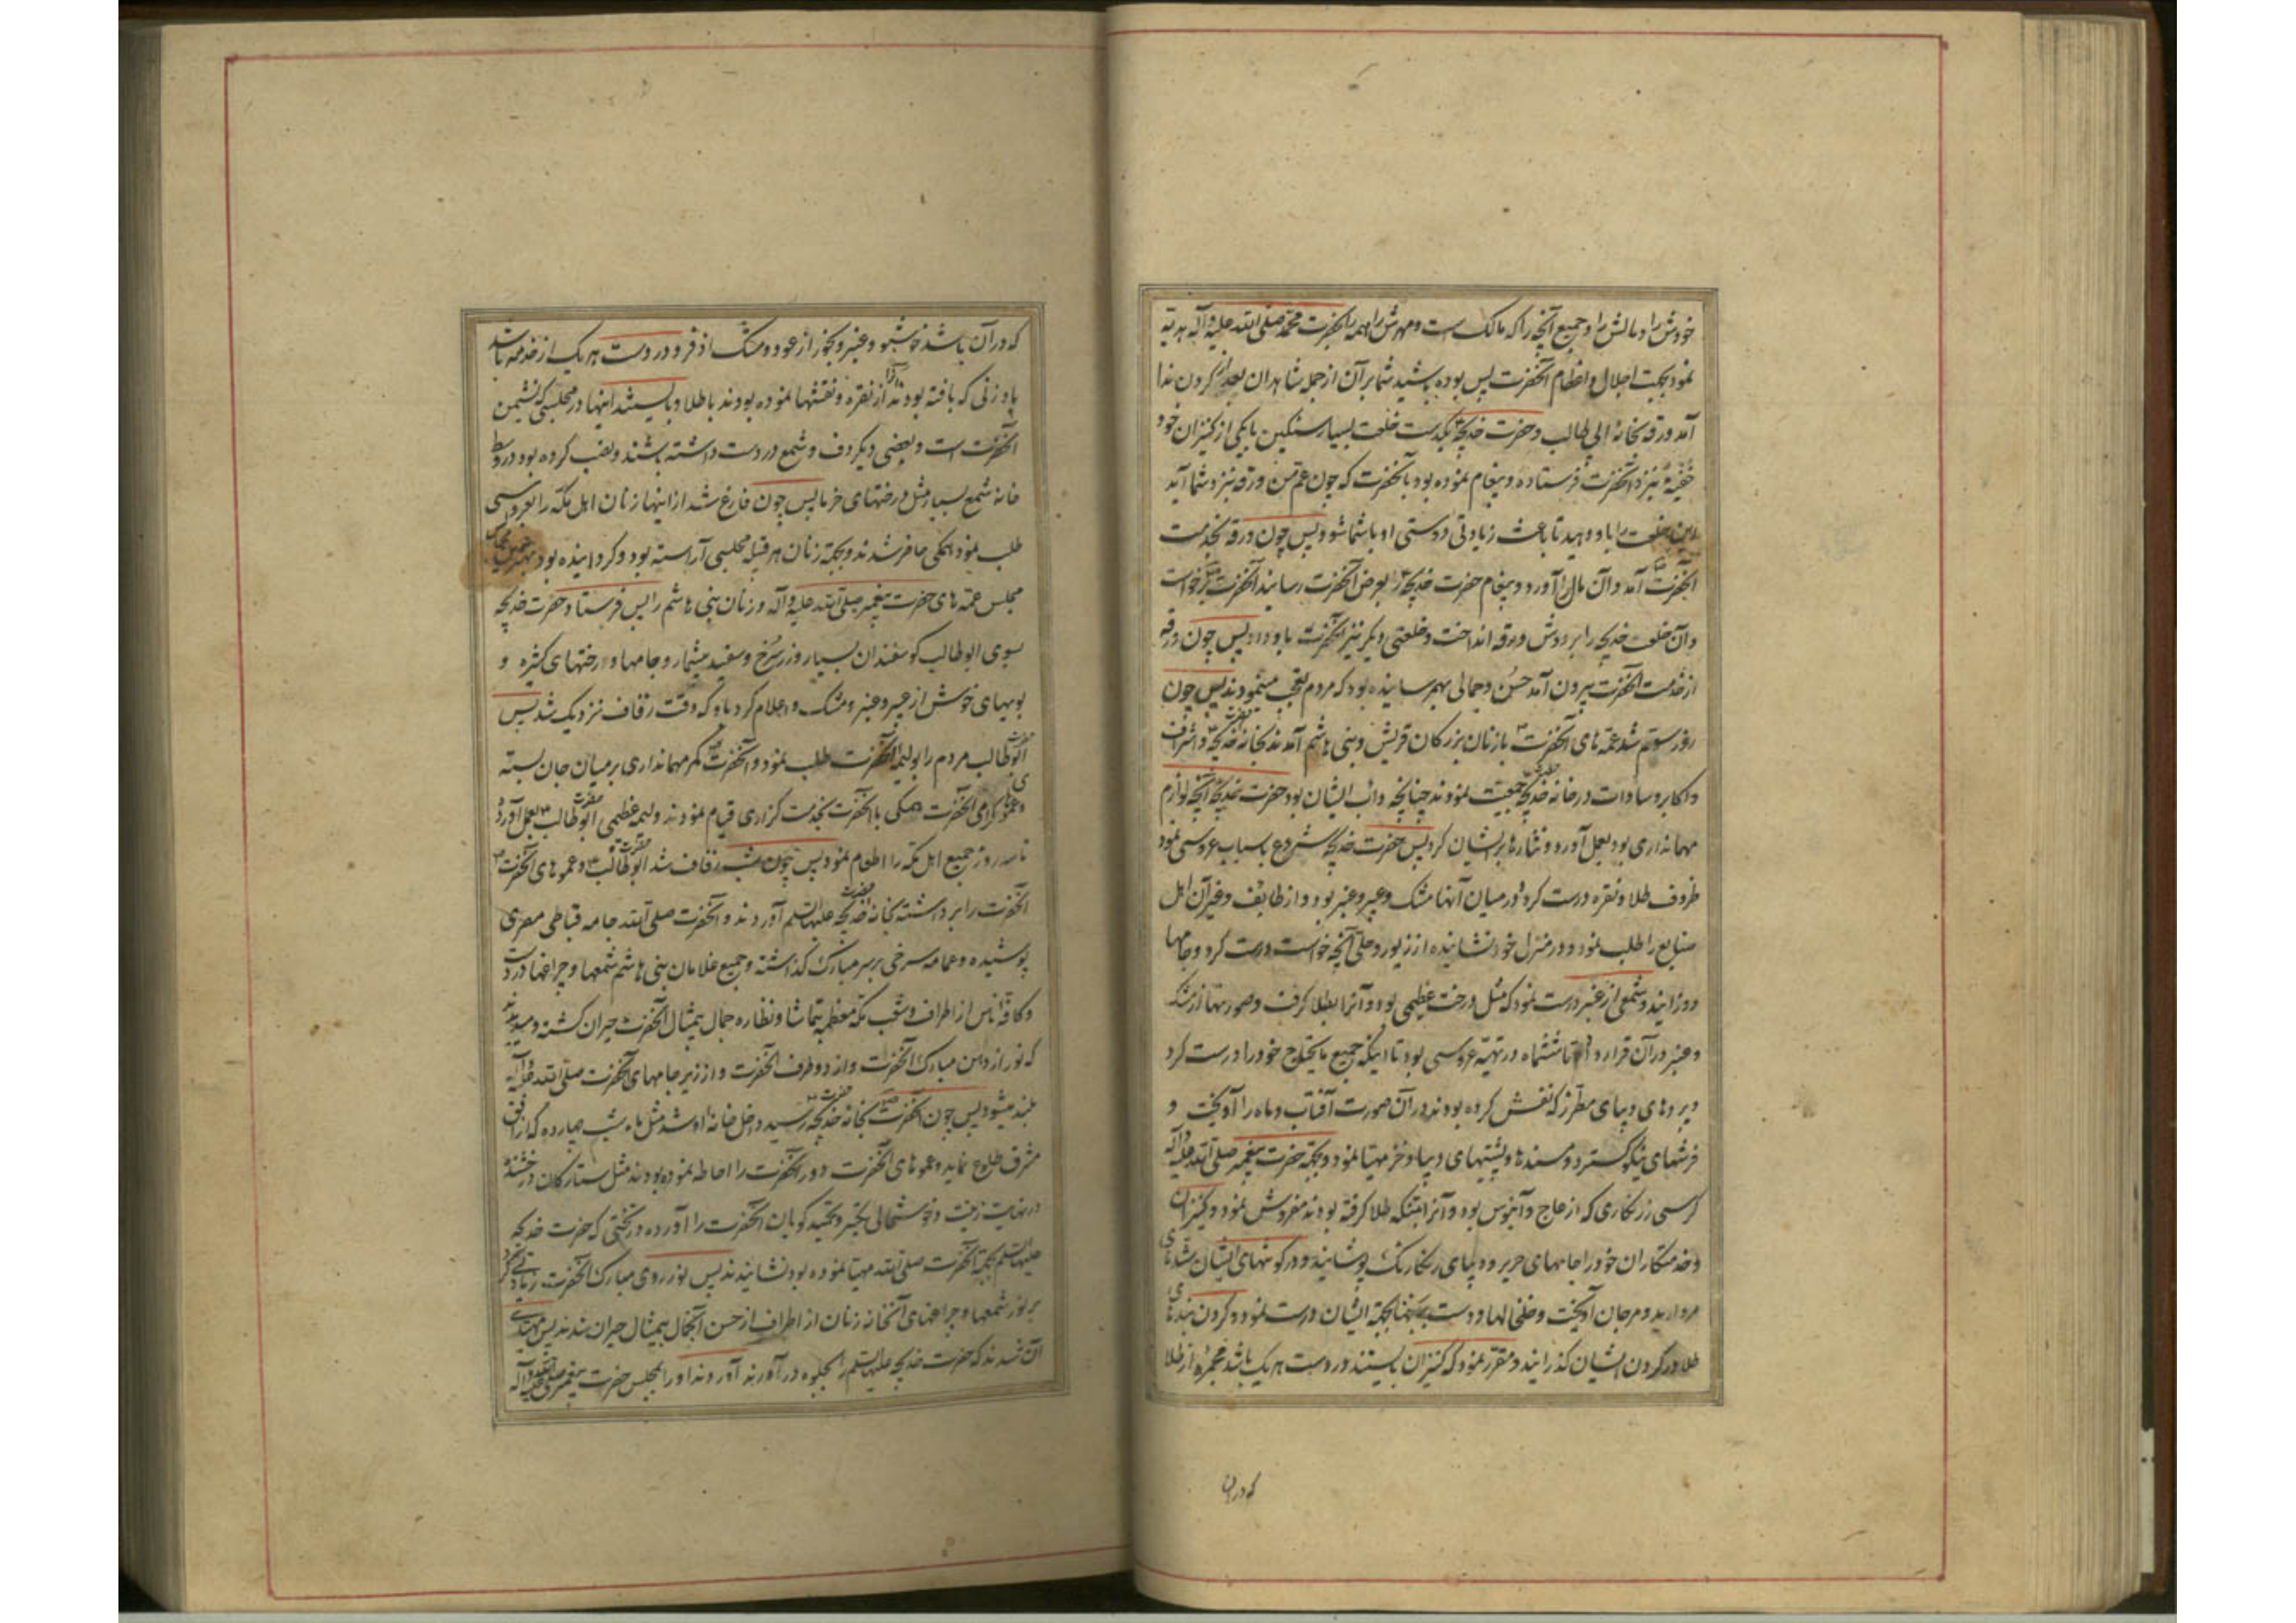 خودش را و مالش را و جمیع آنچه را که مالک است و مهرش را همه را بحضرت محمد صلی الله علیه و آله هدیه
نمود بجهت اجلال و اعظام آنحضرت پس بوده باشید شما بر آن از جمله شاهدان بعد از کردن ندا
آمد ورقه بخانهٔ ابی طالب و حضرت خدیجه یکدست خلعت بسیار سنگین با یکی از کنیزان خود
خفیه نیز نزد آنحضرت فرستاده و پیغام نموده بود بآنحضرت که چون عم من ورقه نزد شما آید
این خلعت را باو دهید تا باعث زیادتی دوستی او با شما شود پس چون ورقه بخدمت
آنحضرت آمد و آن مال را آورد و پیغام حضرت خدیجه را بعرض آنحضرت رسانید آنحضرت برخواست
و آن خلعت خدیجه را بر دوش ورقه انداخت و خلعتی دیگر نیز آنحضرت باو داد پس چون ورقه
از خدمت آنحضرت بیرون آمد حسن و جمالی بهم رسانیده بود که مردم تعجب مینمودند پس چون
روز سوم شد عمه های آنحضرت با زنان بزرگان قریش و بنی هاشم آمدند بخانه حضرت خدیجه و اشراف
و اکابر و سادات در خانه حضرت خدیجه جمعیت نمودند چنانچه دأب ایشان بود حضرت خدیجه آنچه لوازم
مهمانداری بود بعمل آورد و نثارها بر ایشان کرد پس حضرت خدیجه شروع باسباب عروسی نمود
ظروف طلا و نقره درست کرد و در میان آنها مشک و عبیر و عنبر بود و از طایف و غیر آن اهل
صنایع را طلب نمود و در منزل خود نشانیده از زیور و حلی آنچه خواست درست کرد و جامها
دوزانید و شمعی از عنبر درست نمود که مثل درخت عظیمی بود و آنرا بطلا گرفت و صورتها از مشک
و عنبر در آن قرار داد تا ششماه در تهیه عروسی بود تا اینکه جمیع مایحتاج خود را درست کرد
و پردهای دیبای مطرز که نقش کرده بودند در آن صورت آفتاب و ماه را آویخت و
فرشهای نیکو گسترد و مسندها و پشتیهای دیبا و خز مهیا نمود و بجهة حضرت پیغمبر صلی الله علیه و آله
کرسی زرنگاری که از عاج و آبنوس بود و آنرا بتنگه طلا گرفته بودند مفروش نمود و کنیزان
و خدمتکاران خود را جامهای حریر و دیبای رنگارنگ پوشانید و در گوشهای ایشان
مروارید و مرجان آویخت و خلخالها و دست برنجنها بجهة ایشان درست نمود و گردن بندهای
طلا در گردن ایشان گذرانید و مقرر نمود که کنیزان بایستند و در دست هر یک باشد مجمره از طلا
که در آن
که در آن باشد خوشبو و عنبر و بخور از عود و مشک اذفر و در دست هر یک از خدمه باشد
بادزنی که بافته بودند آنرا از نقره و نقشها نموده بودند با طلا و بایستند اینها در مجلسی که نشیمن
آنحضرت است و بعضی دیگر دف و شمع در دست داشته باشند و نصب کرده بود در وسط
خانه شمع بسیار مثل درختهای خرما پس چون فارغ شد از اینها زنان اهل مکه را بعروسی
طلب نمود همگی حاضر شدند و بجهة زنان هر قبیله مجلسی آراسته بود و گردانیده بود
مجلس عمه های حضرت پیغمبر صلی الله علیه و آله و زنان بنی هاشم را پس فرستاد حضرت خدیجه
بسوی ابوطالب گوسفندان بسیار و زر سرخ و سفید بیشمار و جامها و رختهای کثیره و
بویهای خوش از عبیر و عنبر و مشک و اعلام کرد باو که وقت زفاف نزدیک شد پس
حضرت ابوطالب مردم را بولیمه آنحضرت طلب نمود و آنحضرت کمر مهمانداری بر میان جان بسته
و عموهای گرامی آنحضرت همگی با آنحضرت بخدمت گزاری قیام نمودند ولیمه عظیمی حضرت ابوطالب بعمل آورد
تا سه روز جمیع اهل مکه را اطعام نمود پس چون شب زفاف شد حضرت ابوطالب و عموهای آنحضرت
آنحضرت را برداشته بخانه حضرت خدیجه علیها السلام آوردند و آنحضرت صلی الله جامه قباطی مصری
پوشیده و عمامه سرخی بر سر مبارک گذاشته و جمیع غلامان بنی هاشم شمعها و چراغها در دست
و کافه ناس از اطراف و شعب مکه معظمه بتماشا و نظاره جمال بیمثال آنحضرت حیران گشته و میدیدند
که نور از دهن مبارک آنحضرت و از دو طرف آنحضرت و از زیر جامهای آنحضرت صلی الله علیه و آله
بلند میشود پس چون آنحضرت بخانه حضرت خدیجه رسید داخل خانه او شد مثل ماه شب چهارده که از افق
مشرق طلوع نماید و عموهای آنحضرت دور آنحضرت را احاطه نموده بودند مثل ستارگان درخشنده
در نهایت زینت و خوشحالی تکبیر و تحمید گویان آنحضرت را آورده در تختی که حضرت خدیجه
علیها السلام بجهة آنحضرت صلی الله مهیا نموده بود نشانیدند پس نور روی مبارک آنحضرت زیادتی کرد
بر نور شمعها و چراغهای آنخانه زنان از اطراف از حسن آنجمال بیمثال حیران شدند پس مهیای
آن شدند که حضرت خدیجه علیها السلام را بجلوه در آورند آوردند او را بمجلس حضرت پیغمبر صلی الله علیه و آله